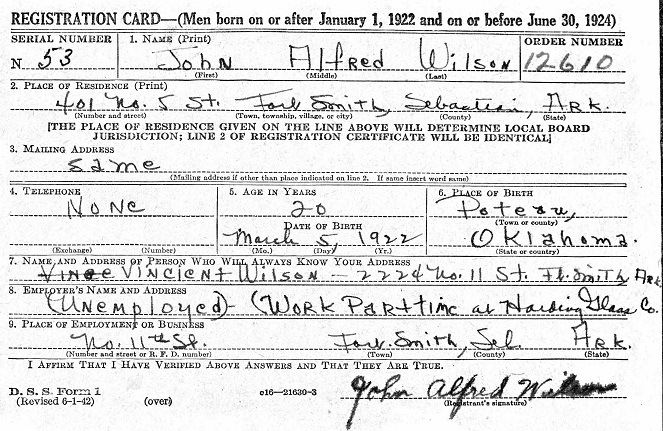 REGISTRATION CARD—(Men born on or after January 1, 1922 and on or before June 30, 1924)
SERIAL NUMBER 1. NAME (Print) ORDER NUMBER
N 53 John Alfred Wilson 12610
(First) (Middle) (Last)
2. PLACE OF RESIDENCE (Print)
401 No. 5 St. Fort Smith, Sebastian, Ark.
(Number and street) (Town, township, village, or city) (County) (State)
[THE PLACE OF RESIDENCE GIVEN ON THE LINE ABOVE WILL DETERMINE LOCAL BOARD
JURISDICTION; LINE 2 OF REGISTRATION CERTIFICATE WILL BE IDENTICAL]
3. MAILING ADDRESS
Same
(Mailing address if other than place indicated on line 2. If same insert word same)
4. TELEPHONE 5. AGE IN YEARS 6. PLACE OF BIRTH
None 20 Poteau,
DATE OF BIRTH (Town or county)
March 5, 1922 Oklahoma.
(Exchange) (Number) (Mo.) (Day) (Yr.) (State or country)
7. NAME AND ADDRESS OF PERSON WHO WILL ALWAYS KNOW YOUR ADDRESS
Vincient Wilson — 2224 No. 11 St. Ft. Smith Ark
8. EMPLOYER'S NAME AND ADDRESS
(Unemployed) - (Work Parttime at Harding Glass Co.
9. PLACE OF EMPLOYMENT OR BUSINESS
No. 11th St. Fort Smith, Seb. Ark.
(Number and street or R. F. D. number) (Town) (County) (State)
I AFFIRM THAT I HAVE VERIFIED ABOVE ANSWERS AND THAT THEY ARE TRUE.
D. S. S. Form 1
(Revised 6-1-42) (over) c16—21630-3 John Alfred Wilson
(Registrant's signature)